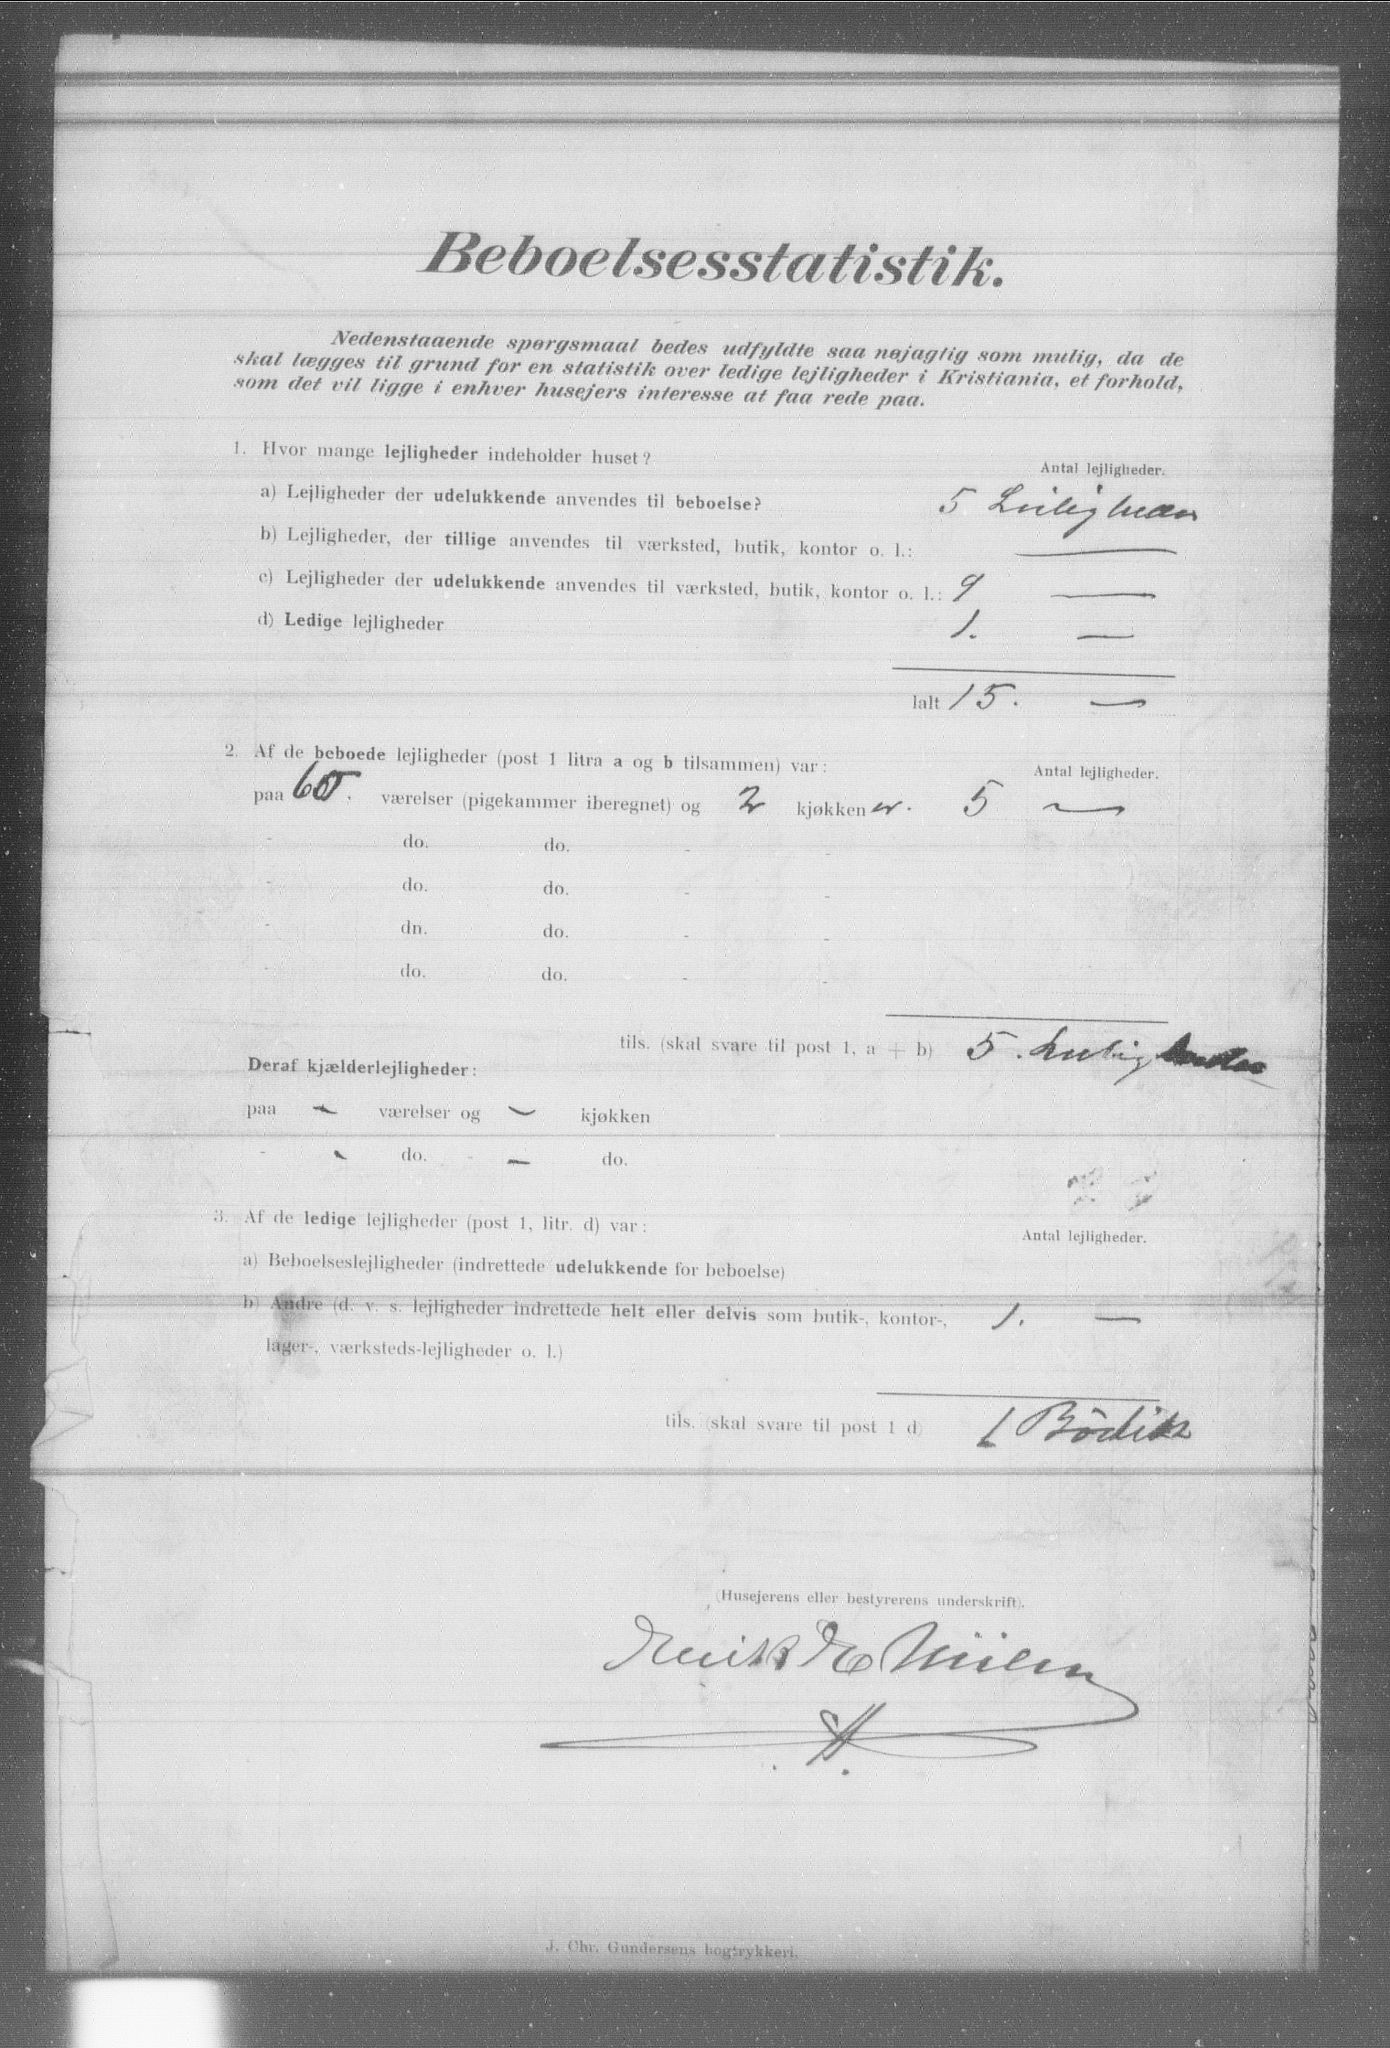 Beboelsesstatistik.
Nedenstaaende spørgsmaal bedes udfyldte saa nøjagtig som mulig, da de
skal lægges til grund for en statistik over ledige lejligheder i Kristiania, et forhold,
som det vil ligge i enhver husejers interesse at faa rede paa.
1. Hvor mange lejligheder indeholder huset?
Antal lejligheder.
a) Lejligheder der udelukkende anvendes til beboelse? 5
b) Lejligheder, der tillige anvendes til værksted, butik, kontor o. l.: —
c) Lejligheder der udelukkende anvendes til værksted, butik, kontor o. l.: 9 —
d) Ledige lejligheder 1. —
Ialt 15. —
2. Af de beboede lejligheder (post 1 litra a og b tilsammen) var:
Antal lejligheder.
paa værelser (pigekammer iberegnet) og 2 kjøkken er. 5 —
- do. do. - -
- do. do. - -
- dn. do. - -
- do. do. - -
tils. (skal svare til post 1, a + b) 5.
Deraf kjælderlejligheder:
paa - værelser og - kjøkken
- - do. - - do.
3. Af de ledige lejligheder (post 1, litr. d) var:
Antal lejligheder.
a) Beboelseslejligheder (indrettede udelukkende for beboelse)
b) Andre (d. v. s. lejligheder indrettede helt eller delvis som butik-, kontor-, 1. —
lager-, værksteds-lejligheder o. l.)
tils. (skal svare til post 1 d) 1
(Husejerens eller bestyrerens underskrift).
J. Chr. Gundersens bogtrykkeri.